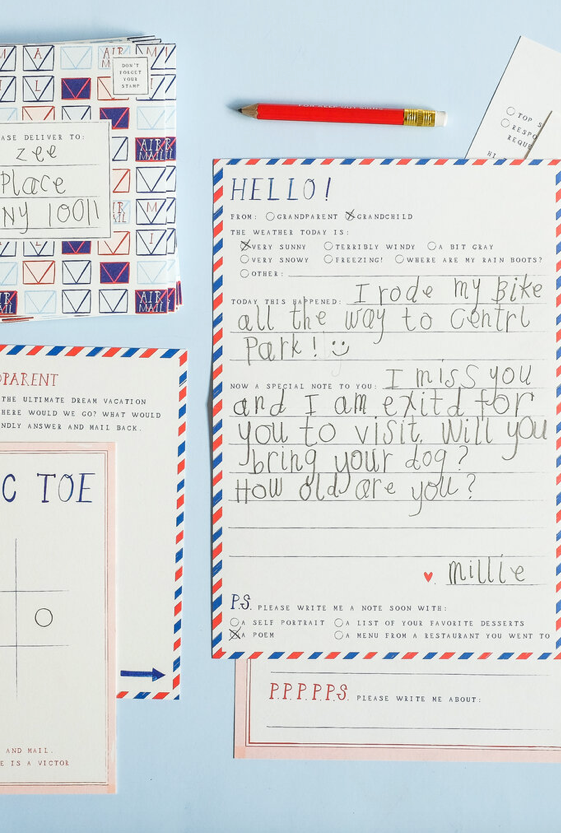 AIR
MAIL
DON'T
FORGET
YOUR
STAMP
DELIVER TO:
zee
Place
NY 10011
AIR
MAIL
AIR
MAIL
TOP
HELLO!
FROM: GRANDPARENT GRANDCHILD
THE WEATHER TODAY IS:
VERY SUNNY TERRIBLY WINDY A BIT GRAY
VERY SNOWY FREEZING! WHERE ARE MY RAIN BOOTS?
OTHER:
TODAY THIS HAPPENED: I rode my Bike
all the way to Centrl
Park!
NOW A SPECIAL NOTE TO YOU: I miss you
and I am exitd for
you to visit. Will you
bring your dog?
How old are you?
millie
P.S. PLEASE WRITE ME A NOTE SOON WITH:
A SELF PORTRAIT A LIST OF YOUR FAVORITE DESSERTS
A POEM A MENU FROM A RESTAURANT YOU WENT TO
P.P.P.P.P.S. PLEASE WRITE ME ABOUT:
THE ULTIMATE DREAM VACATION
HERE WOULD WE GO? WHAT WOULD
ANSWER AND MAIL BACK.
C TOE
AND MAIL.
IS A VICTOR